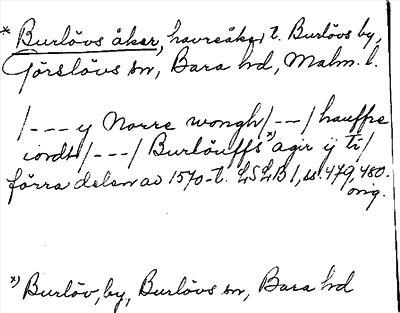 * Burlövs åker, havreåker, t. Burlövs by,
Görslövs sn, Bara hd, Malm. l.
/--- y Norre wongh/---/ hauffre
iordt/---/ Burlöuffs *) agir ij ti/
förra delen av 1570-t. LSLB 1, ss. 479, 480.
orig.
*) Burlöv, by, Burlövs sn, Bara hd